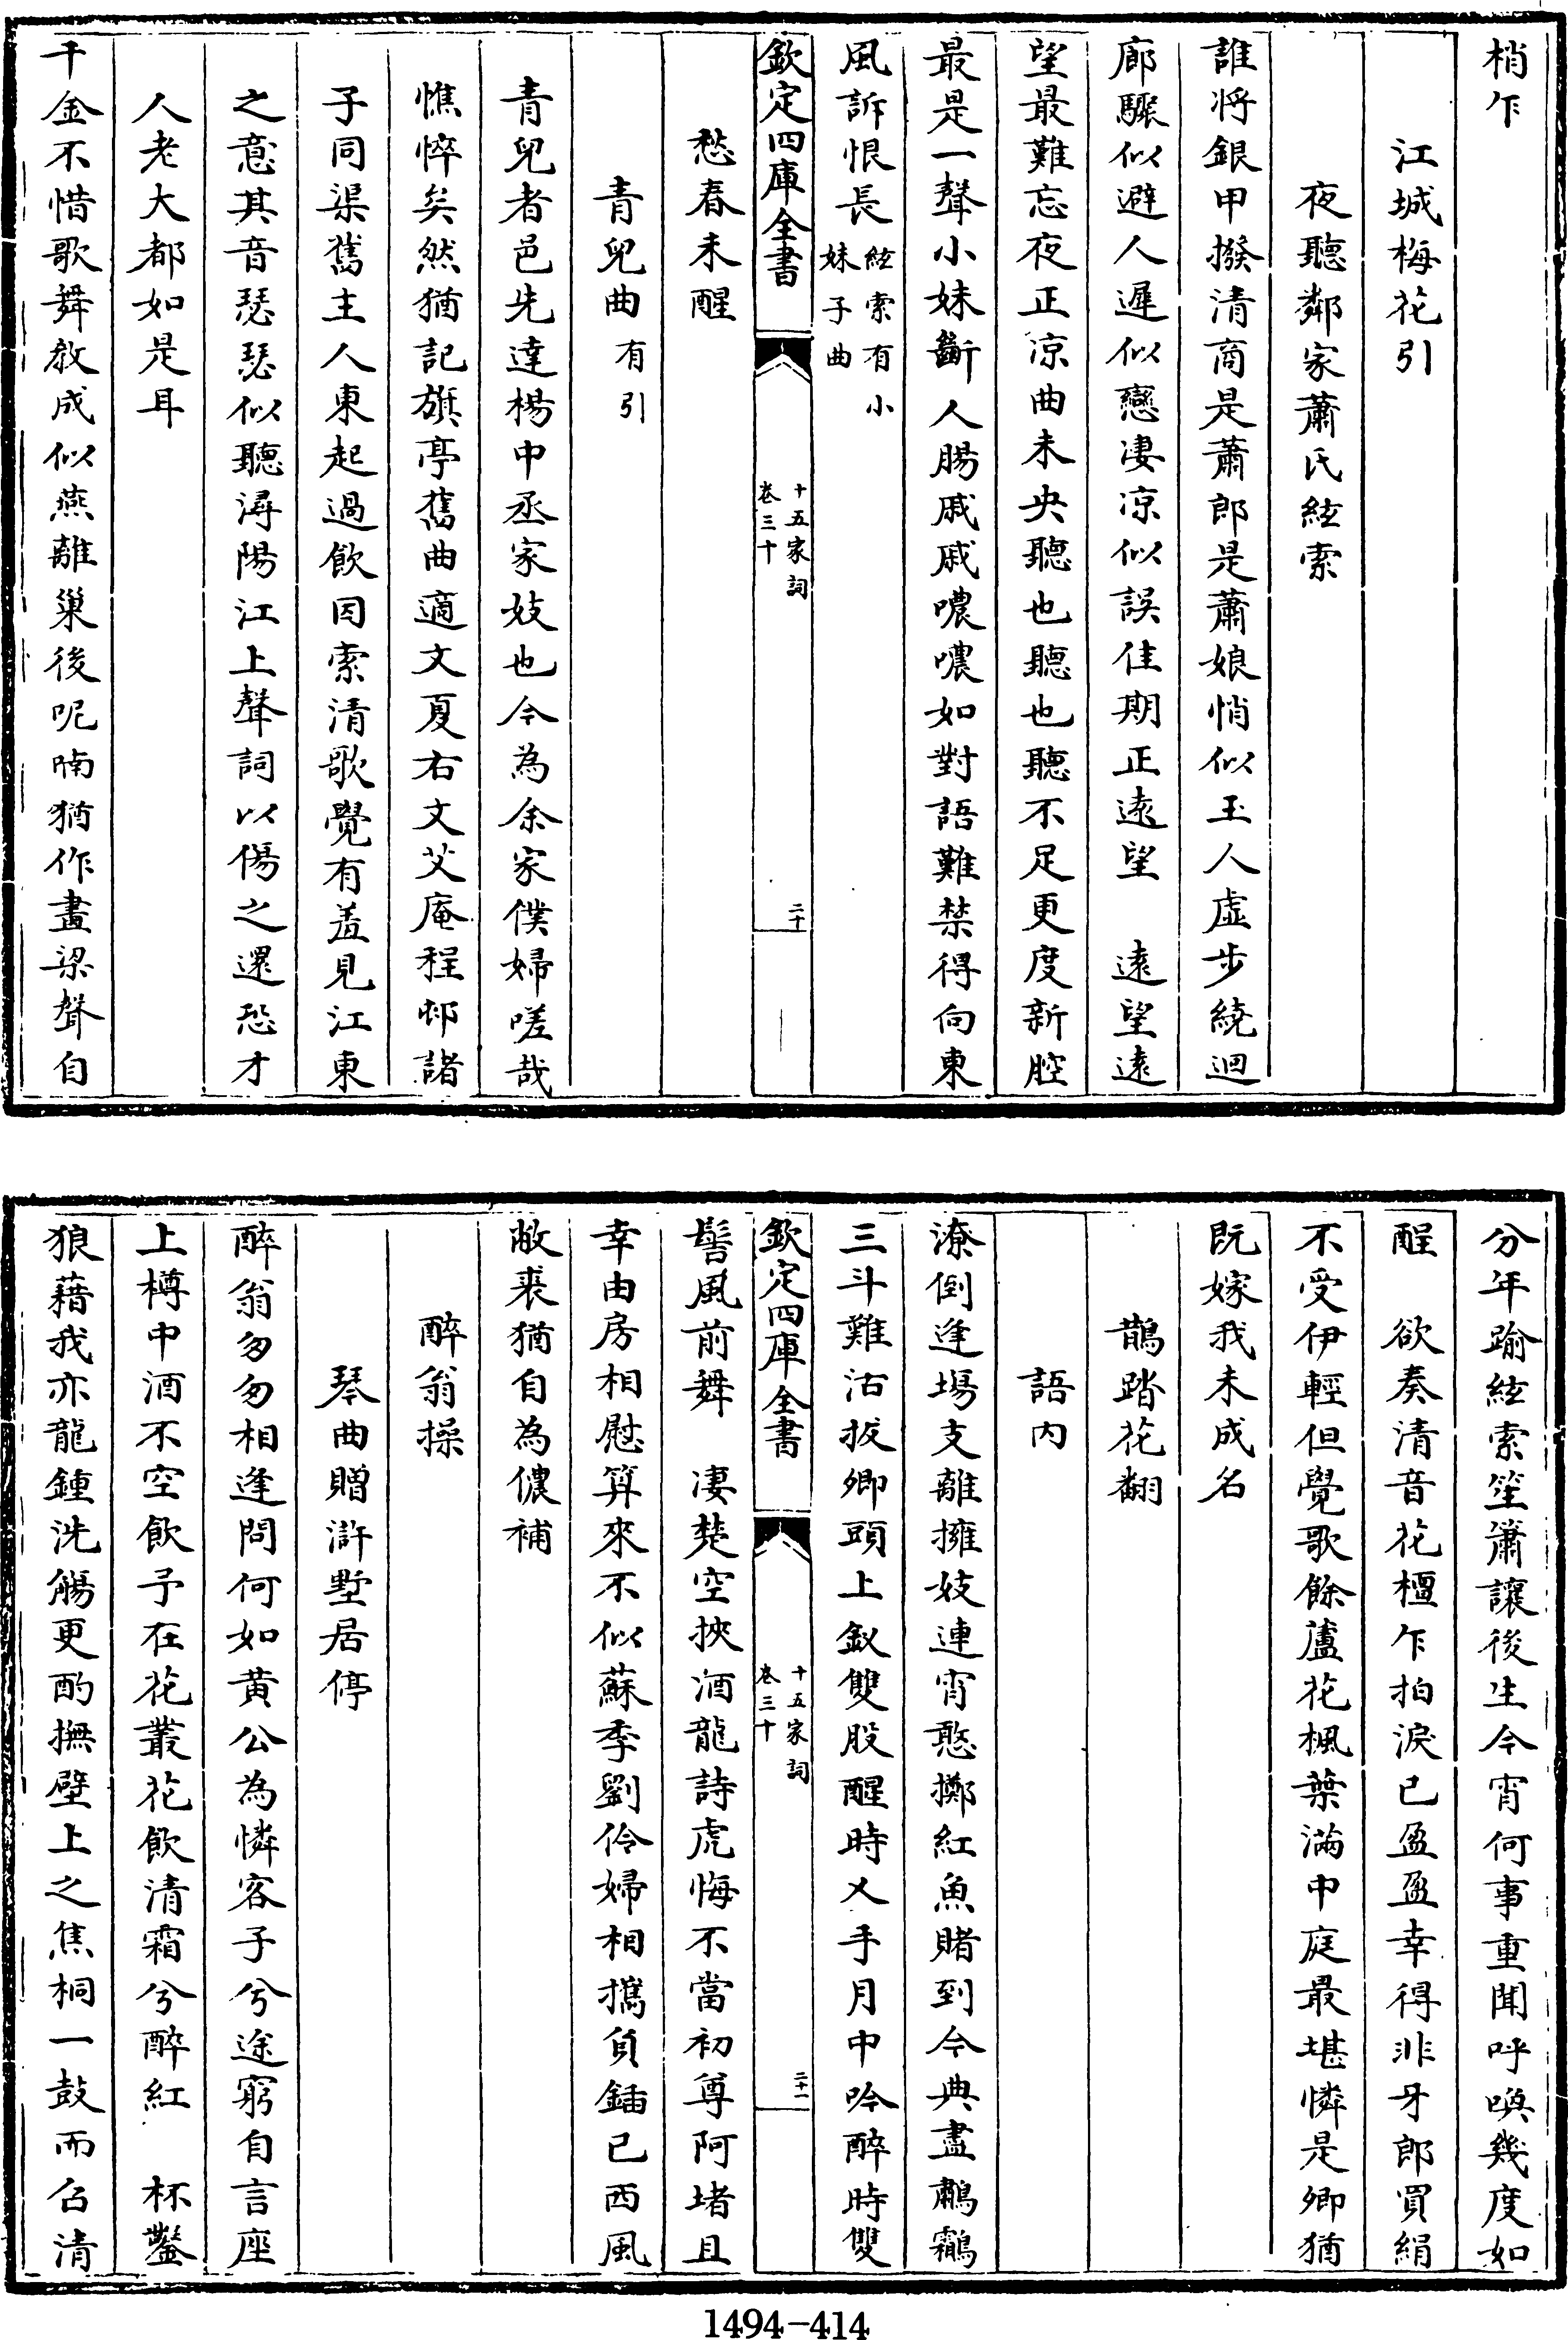 梢乍
江城梅花引
夜聽鄰家蕭氏絃索
誰將銀甲撥清商是蕭郎是蕭娘悄似玉人虛步繞迴
廊驟似避人遲似戀淒涼似誤佳期正遠望　遠望遠
望最難忘夜正涼曲未央聽也聽也聽不足更度新腔
最是一聲小妹斷人腸戚戚噥噥如對語難禁得向東
風訴恨長絃索有小妹子曲
欽定四庫全書
十五家詞
卷三十
二十
愁春未醒
青兒曲有引
青兒者邑先達楊中丞家妓也今為余家僕婦嗟哉
憔悴矣然猶記旗亭舊曲適文夏右文艾庵程邨諸
子同渠舊主人東起過飲因索清歌覺有葢見江東
之意其音瑟瑟似聽潯陽江上聲詞以傷之還恐才
人老大都如是耳
千金不惜歌舞敎成似燕離巢後呢喃猶作畫梁聲自
分年踰絃索笙簫讓後生今宵何事重聞呼喚幾度如
酲　欲奏清音花檀乍拍淚已盈盈幸得非牙郎買絹
不受伊輕但覺歌餘蘆花楓葉滿中庭最堪憐是卿猶
既嫁我未成名
鵲踏花翻
語内
潦倒逢塲支離擁妓連宵憨擲紅魚賭到今典盡鷫鸘
三斗難沽拔卿頭上釵雙股醒時乂手月中吟醉時雙
髻風前舞　淒楚空挾酒龍詩虎悔不當初尊阿堵且
幸由房相慰算來不似蘇季劉伶婦相攜負鍤已西風
敝裘猶自為儂補
欽定四庫全書
十五家詞
卷三十
二十一
醉翁操
琴曲贈滸墅居停
醉翁匆匆相逢問何如黄公為憐客子兮途窮自言座
上樽中酒不空飲予在花叢花飲清霜兮醉紅　杯盤
狼藉我亦龍鍾洗觴更酌撫壁上之焦桐一鼓而召清
1494-414